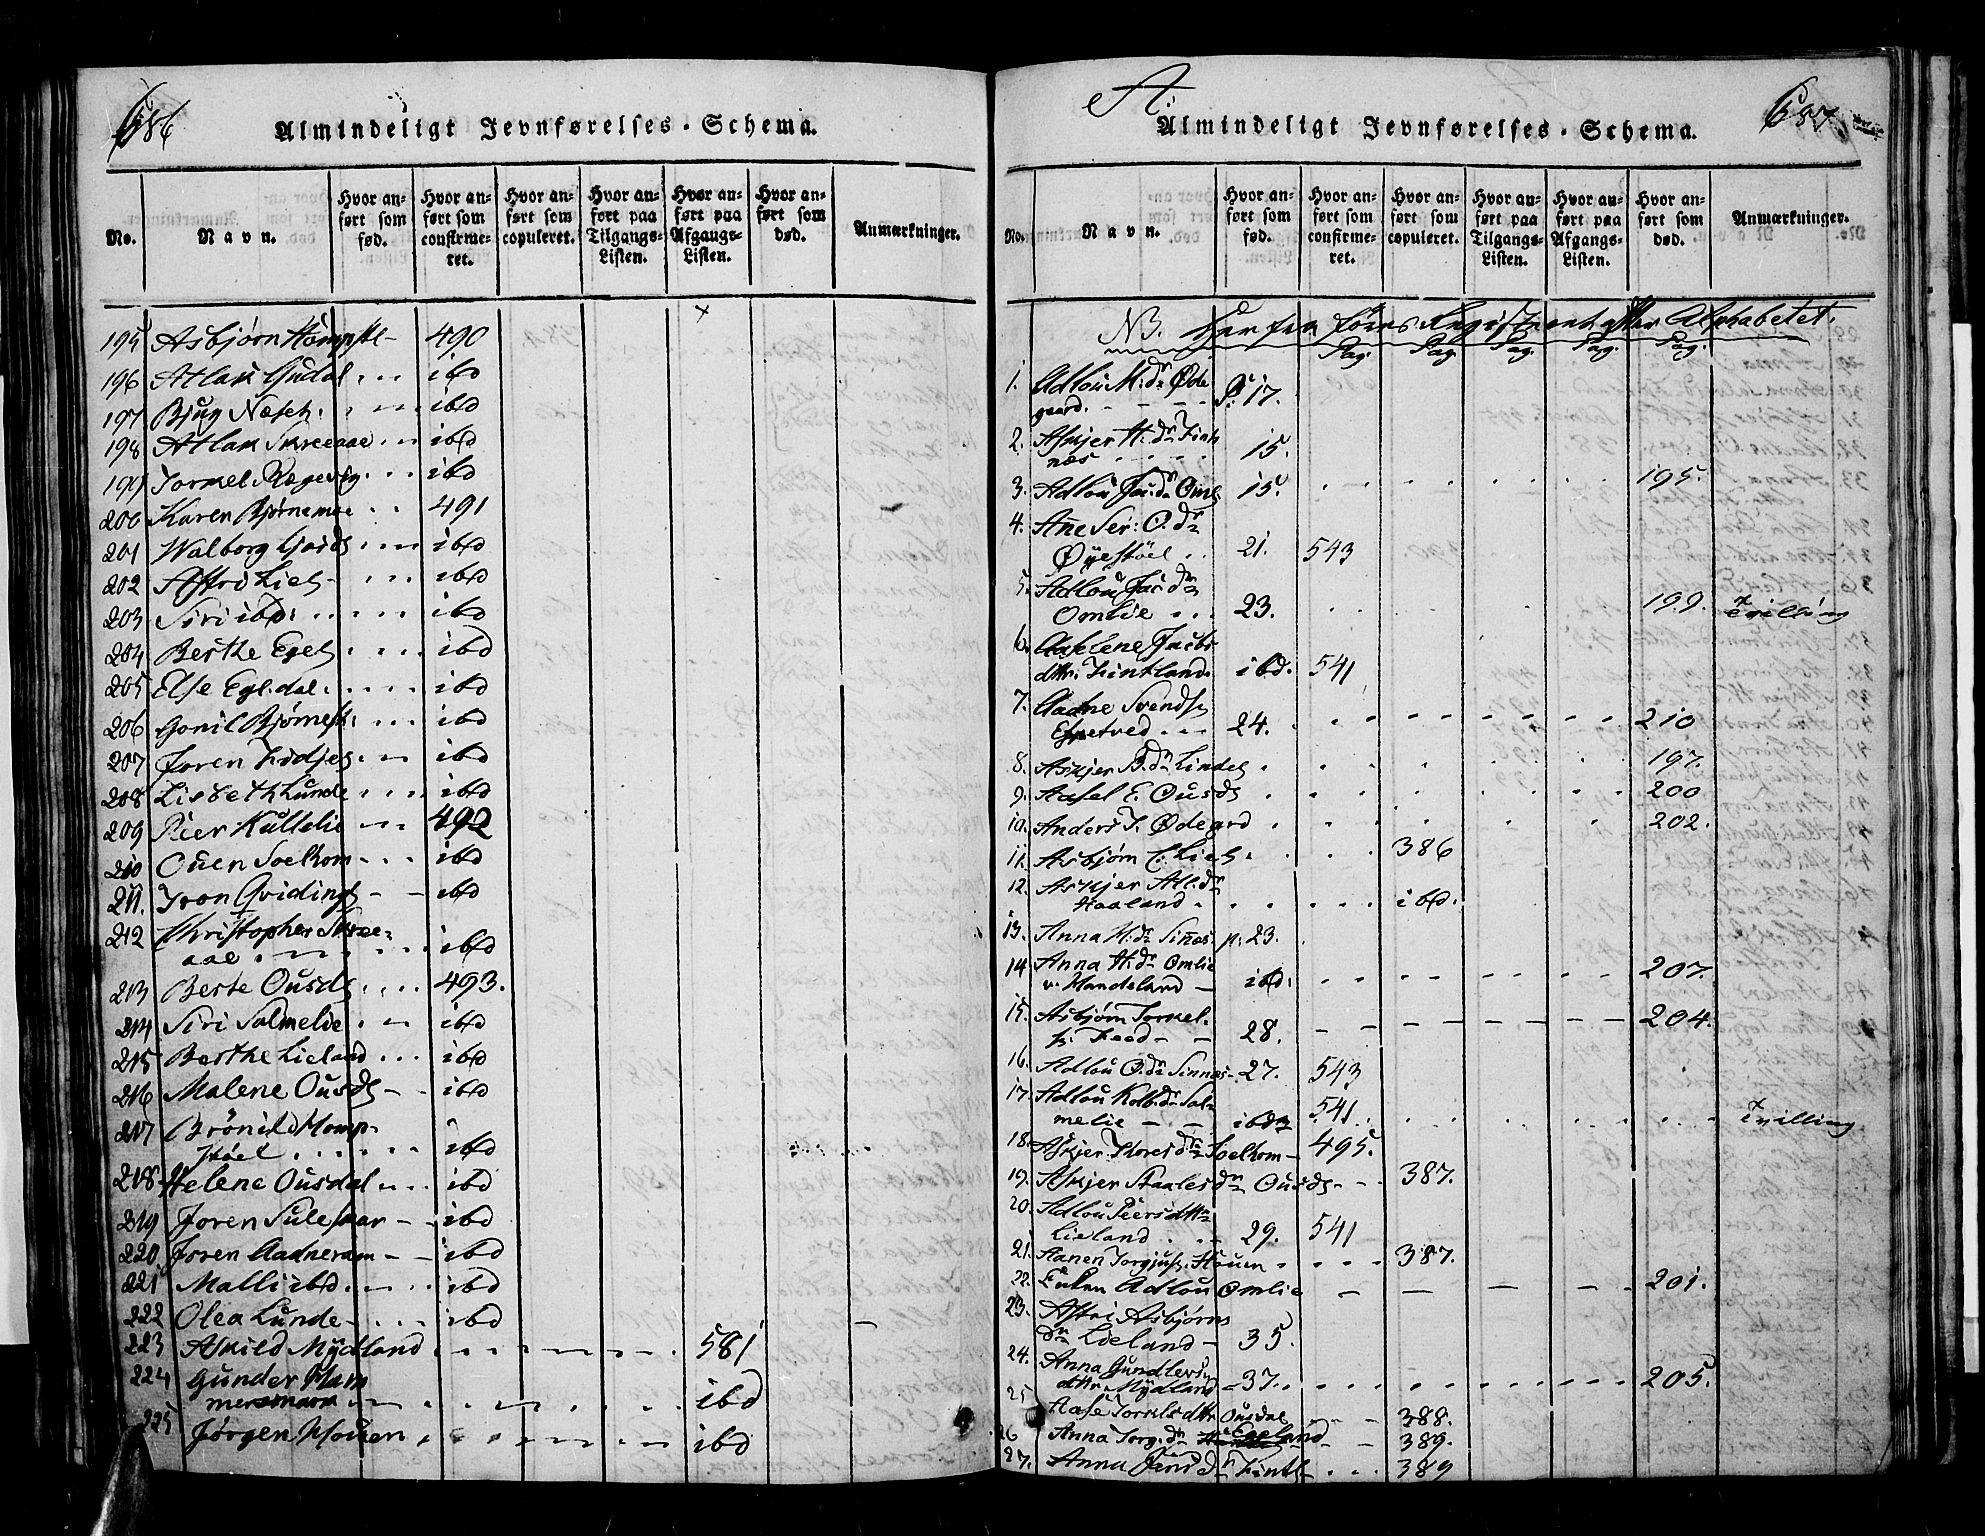 686
Almindeligt Jevnførelses-Schema.
No.
Navn.
Hvor anført som fød.
Hvor anført som confirmeret.
Hvor anført som copuleret.
Hvor anført paa Tilgangs-Listen.
Hvor anført paa Afgangs-Listen.
Hvor anført som død.
Anmærkninger.
195 Asbjørn 490
196 Atlak Gudal ibd
197 Bjug Næset ibd
198 Atlak Skreeaae ibd
199 Tormel ibd
200 Karen Bjørnemoe 491
201 Walborg ibd
202 Astri Lien ibd
203 Siri ibd: ibd
204 Berthe ibd
205 Else ibd
206 Gonil ibd
207 Joren ibd
208 Lisbeth Lunde ibd
209 Peer 492
210 Ouen Soelhom ibd
211. Tron ibd
212 Christopher Skree=
aae ibd
213 Berte Ousds 493.
214 Siri Salmelie ibd
215 Berthe Lieland ibd
216 Malene Ousds ibd
217 Brönild Homp-
støel ibd
218 Helene Ousdal ibd
219 Joren ibd
220. Joren Aadneram ibd
221 Malli ibd. ibd
222 Olea Lunde ibd
223 Askild Mydland 581
224 Gunder Ham
mersmark ibd
225 Jørgen Houen ibd
A.
687
Almindeligt Jevnførelses-Schema.
No.
Navn.
Hvor anført som fød.
Hvor anført som confirmeret.
Hvor anført som copuleret.
Hvor anført paa Tilgangs-Listen.
Hvor anført paa Afgangs-Listen.
Hvor anført som død.
Anmærkninger.
NB. Herfra föres Registeret efter Alphabetet.
Pag. Pag. Pag. Pag. Pag.
1. Adlou Øde
gaard. P. 17.
2. Askjer
15.
3. Adlou 15. 195.
4. Ane Ser: O.dr
Øyestöel 21. 543
5. Adlou
Omlie 23. 199. Tvilling
6. Jacobs
dttr. Fintland ibd. 541
7. Aadne Svends
24. 210
8. Askjer 197.
9. Aasel E. Ousds 200
10. Anders Ødegard 202.
11. Asbjørn 386
12. Askjer
Haaland ibd.
13. Anna Sinnes p. 23.
14 Anna Omlie
v. Handeland ibd. 207.
15. Asbjørn Tormel-
28. 204.
16. Adlou Sinnes 27. 543
17. Adlou Sal=
melie ibd 541 Tvilling
18. Askjer Soelhom 495.
19. Askjer Staalesdr Ousds 387.
20. Adlou Peersdttr
Lieland 29. 541
21. Aanen Houen 387.
22. Enken Adlou Omlie 201.
23. Astri Asbjørns
dr Lieland 35.
24. Anna
dttr. Mydland 37. 205.
25 Aase Ousdal 388.
26 Anna Egeland 389.
27. Anna 389